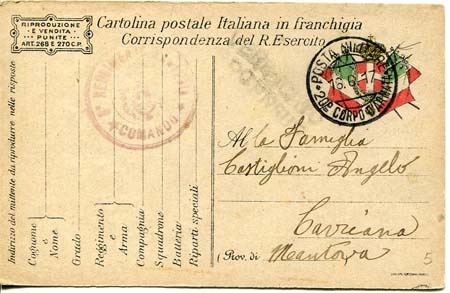 RIPRODUZIONE
E VENDITA
PUNITE
ART. 268 E 270 C.P.
Cartolina postale Italiana in franchigia
Corrispondenza del R. Esercito
POSTA MILITARE
16. 6. 17
20º CORPO D'ARMATA
COMANDO
Alla Famiglia
Castiglioni Angelo
Cavriana
(Prov. di Mantova
5
Indirizzo del mittente da riprodurre nelle risposte
Cognome e Nome
Grado
Reggimento e Arma
Compagnia
Squadrone
Batteria
Riparti speciali